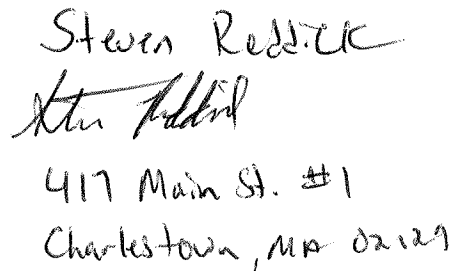 Steven Reddick
Steven Reddick
417 Main St. #1
Charlestown, MA 02129